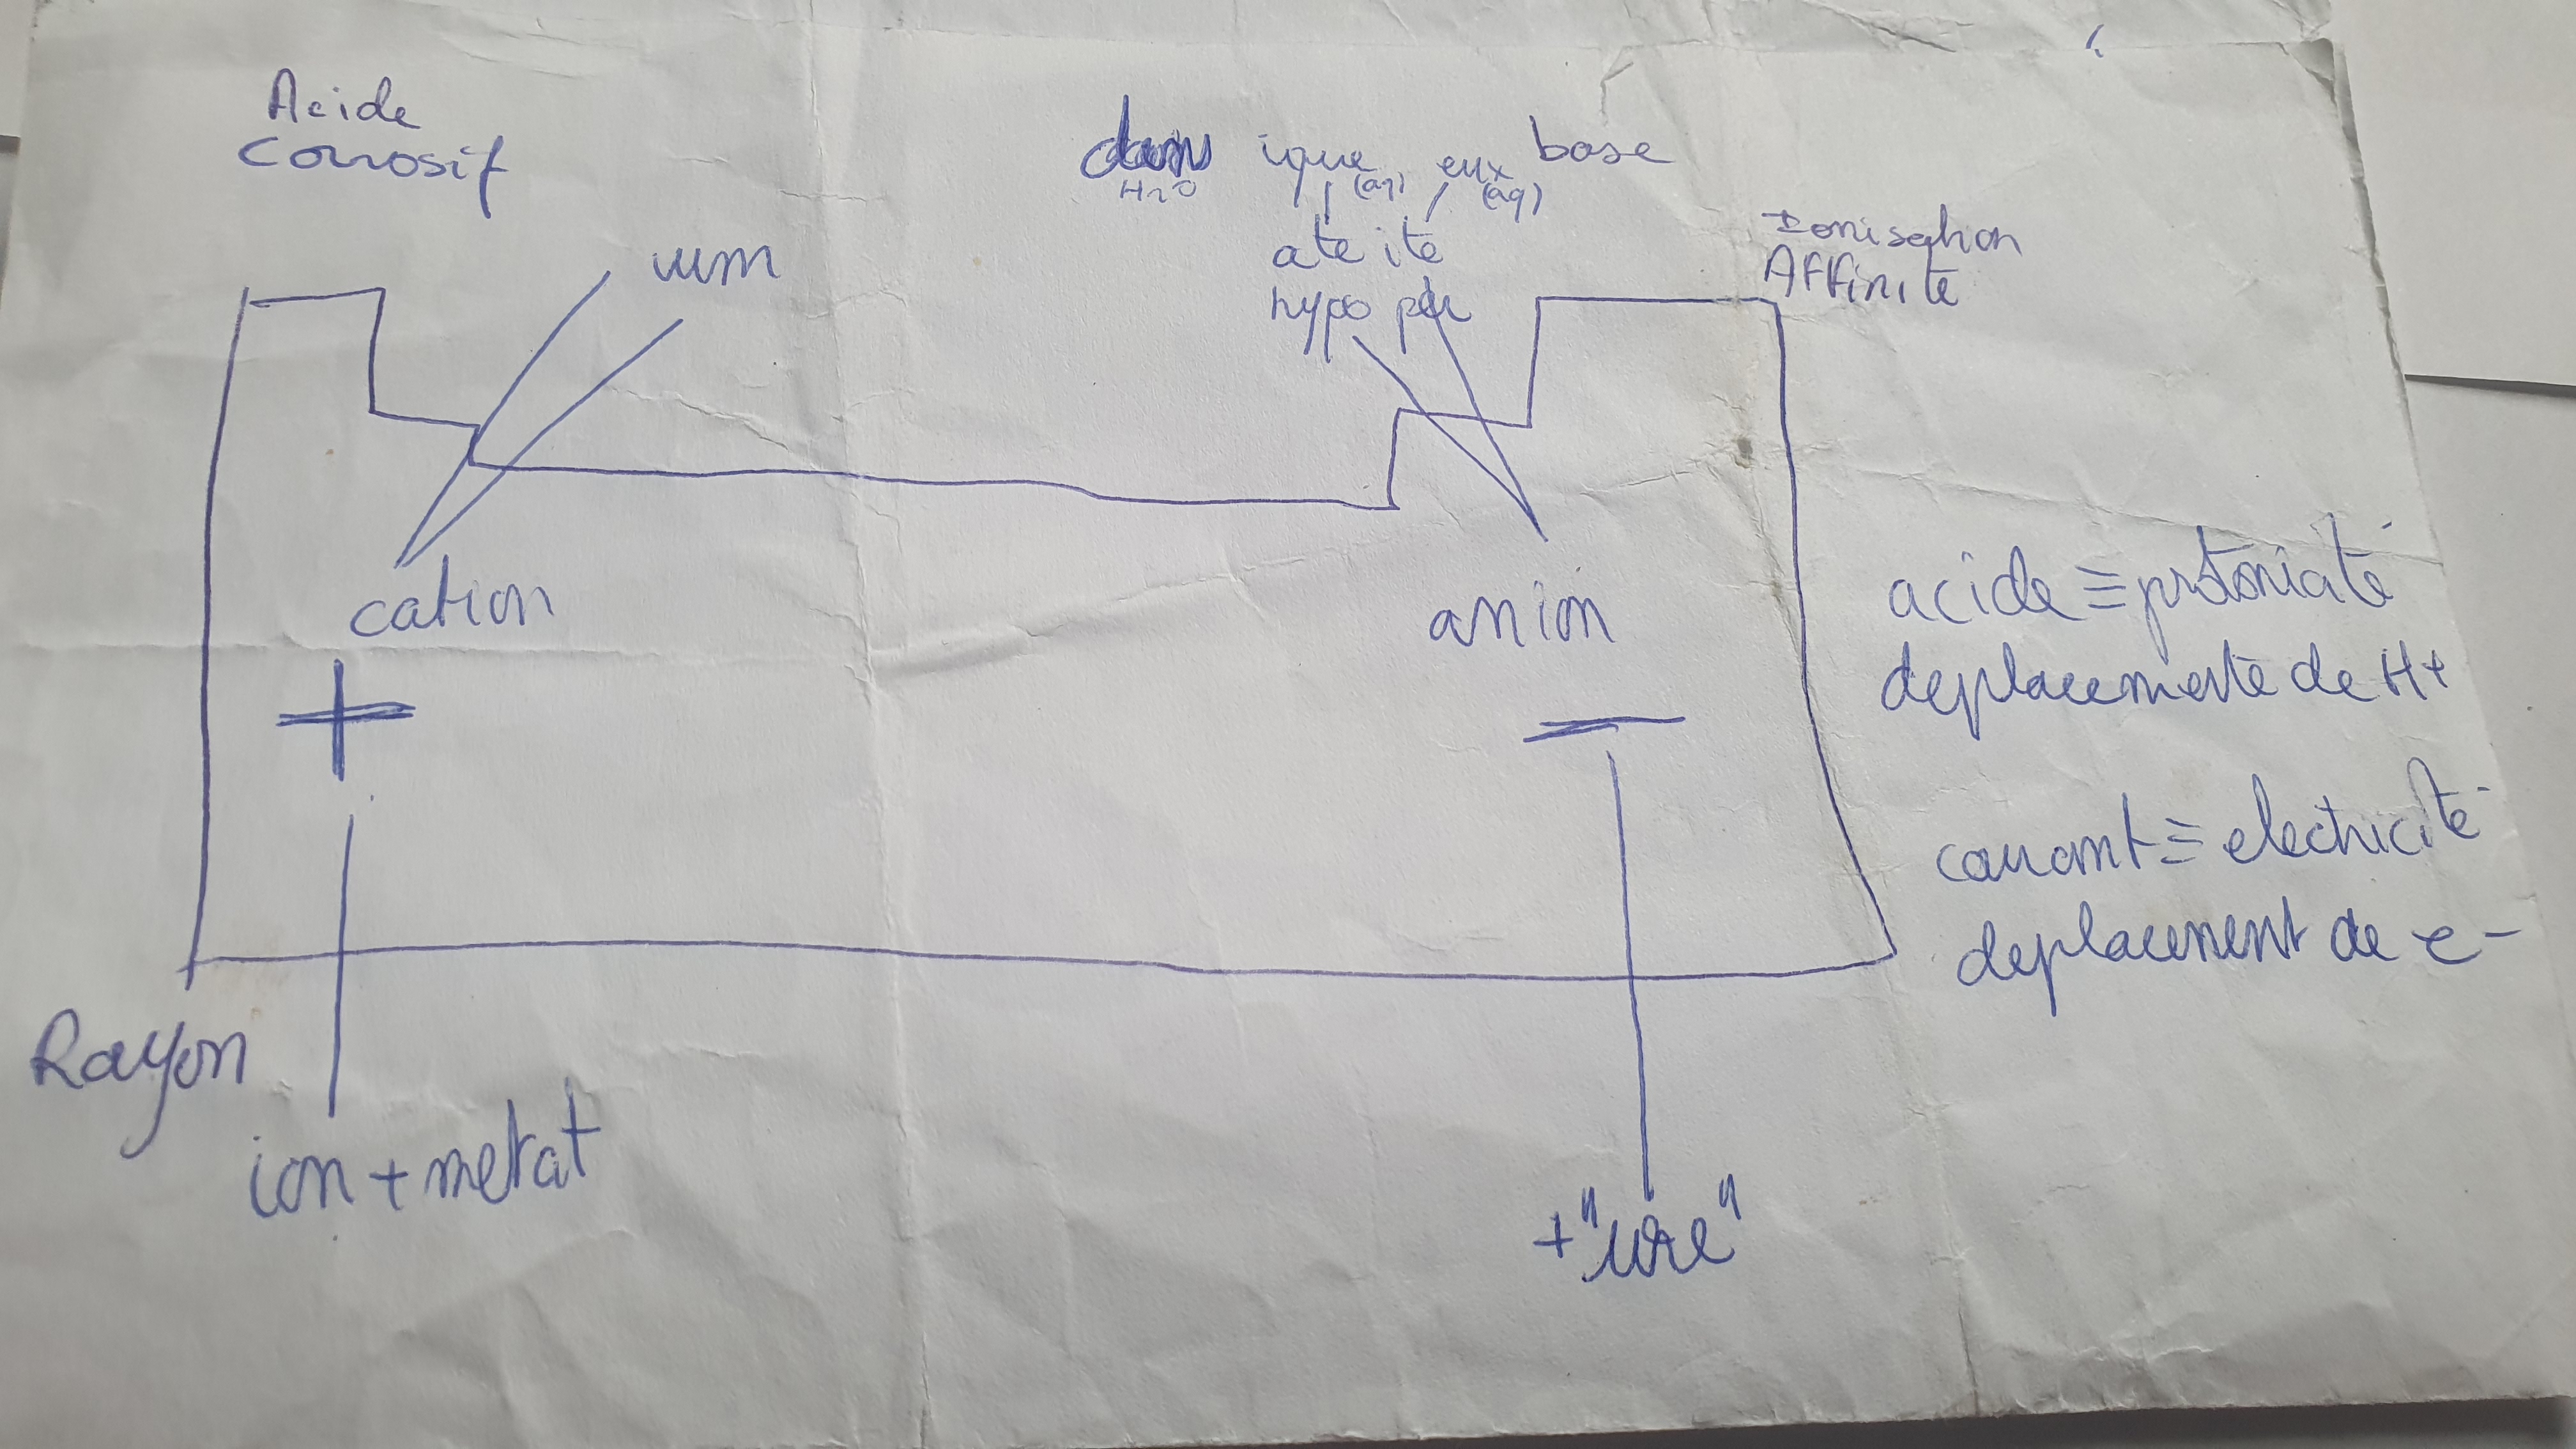 Acide
Corrosif
dans ique, eux base
H2O (aq) (aq)
ate ite
hypo per
ium
Ionisation
Affinité
cation
anion
+
—
acide ≡ protoniaté
deplacemente de H+
courant ≡ electricité
deplacement de e-
Rayon
ion + metat
+ "ure"